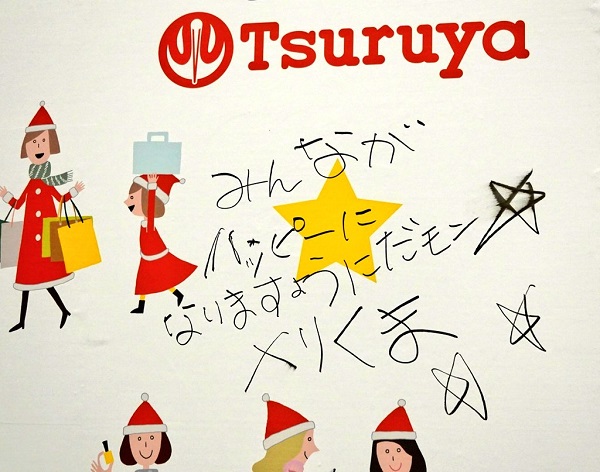 Tsuruya
みんなが
ハッピーに
なりますようにだモン
メリくま